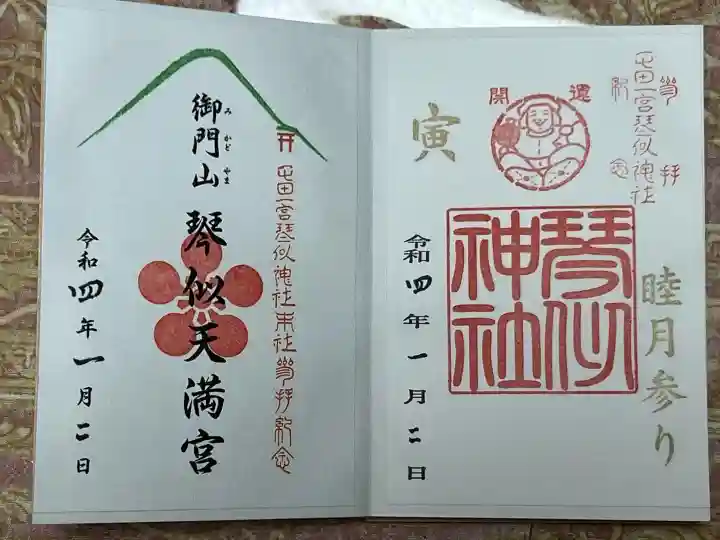 屯田一宮琴似神社
参拝
紀念
開運
寅
琴似
神社
睦月参り
令和四年一月二日
屯田一宮琴似神社末社参拝紀念
御門山
みかどやま
琴似天満宮
令和四年一月二日